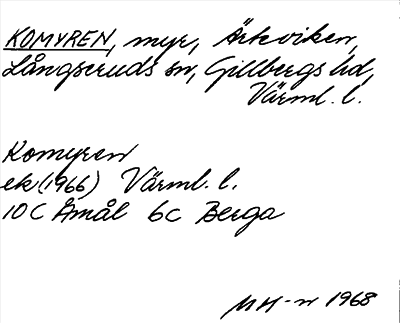 KOMYREN, myr, Ärteviken,
Långseruds sn, Gillbergs hd,
Värml. l.
Komyren
ek (1966) Värml. l.
10 C Åmål 6c Berga
MH-n 1968